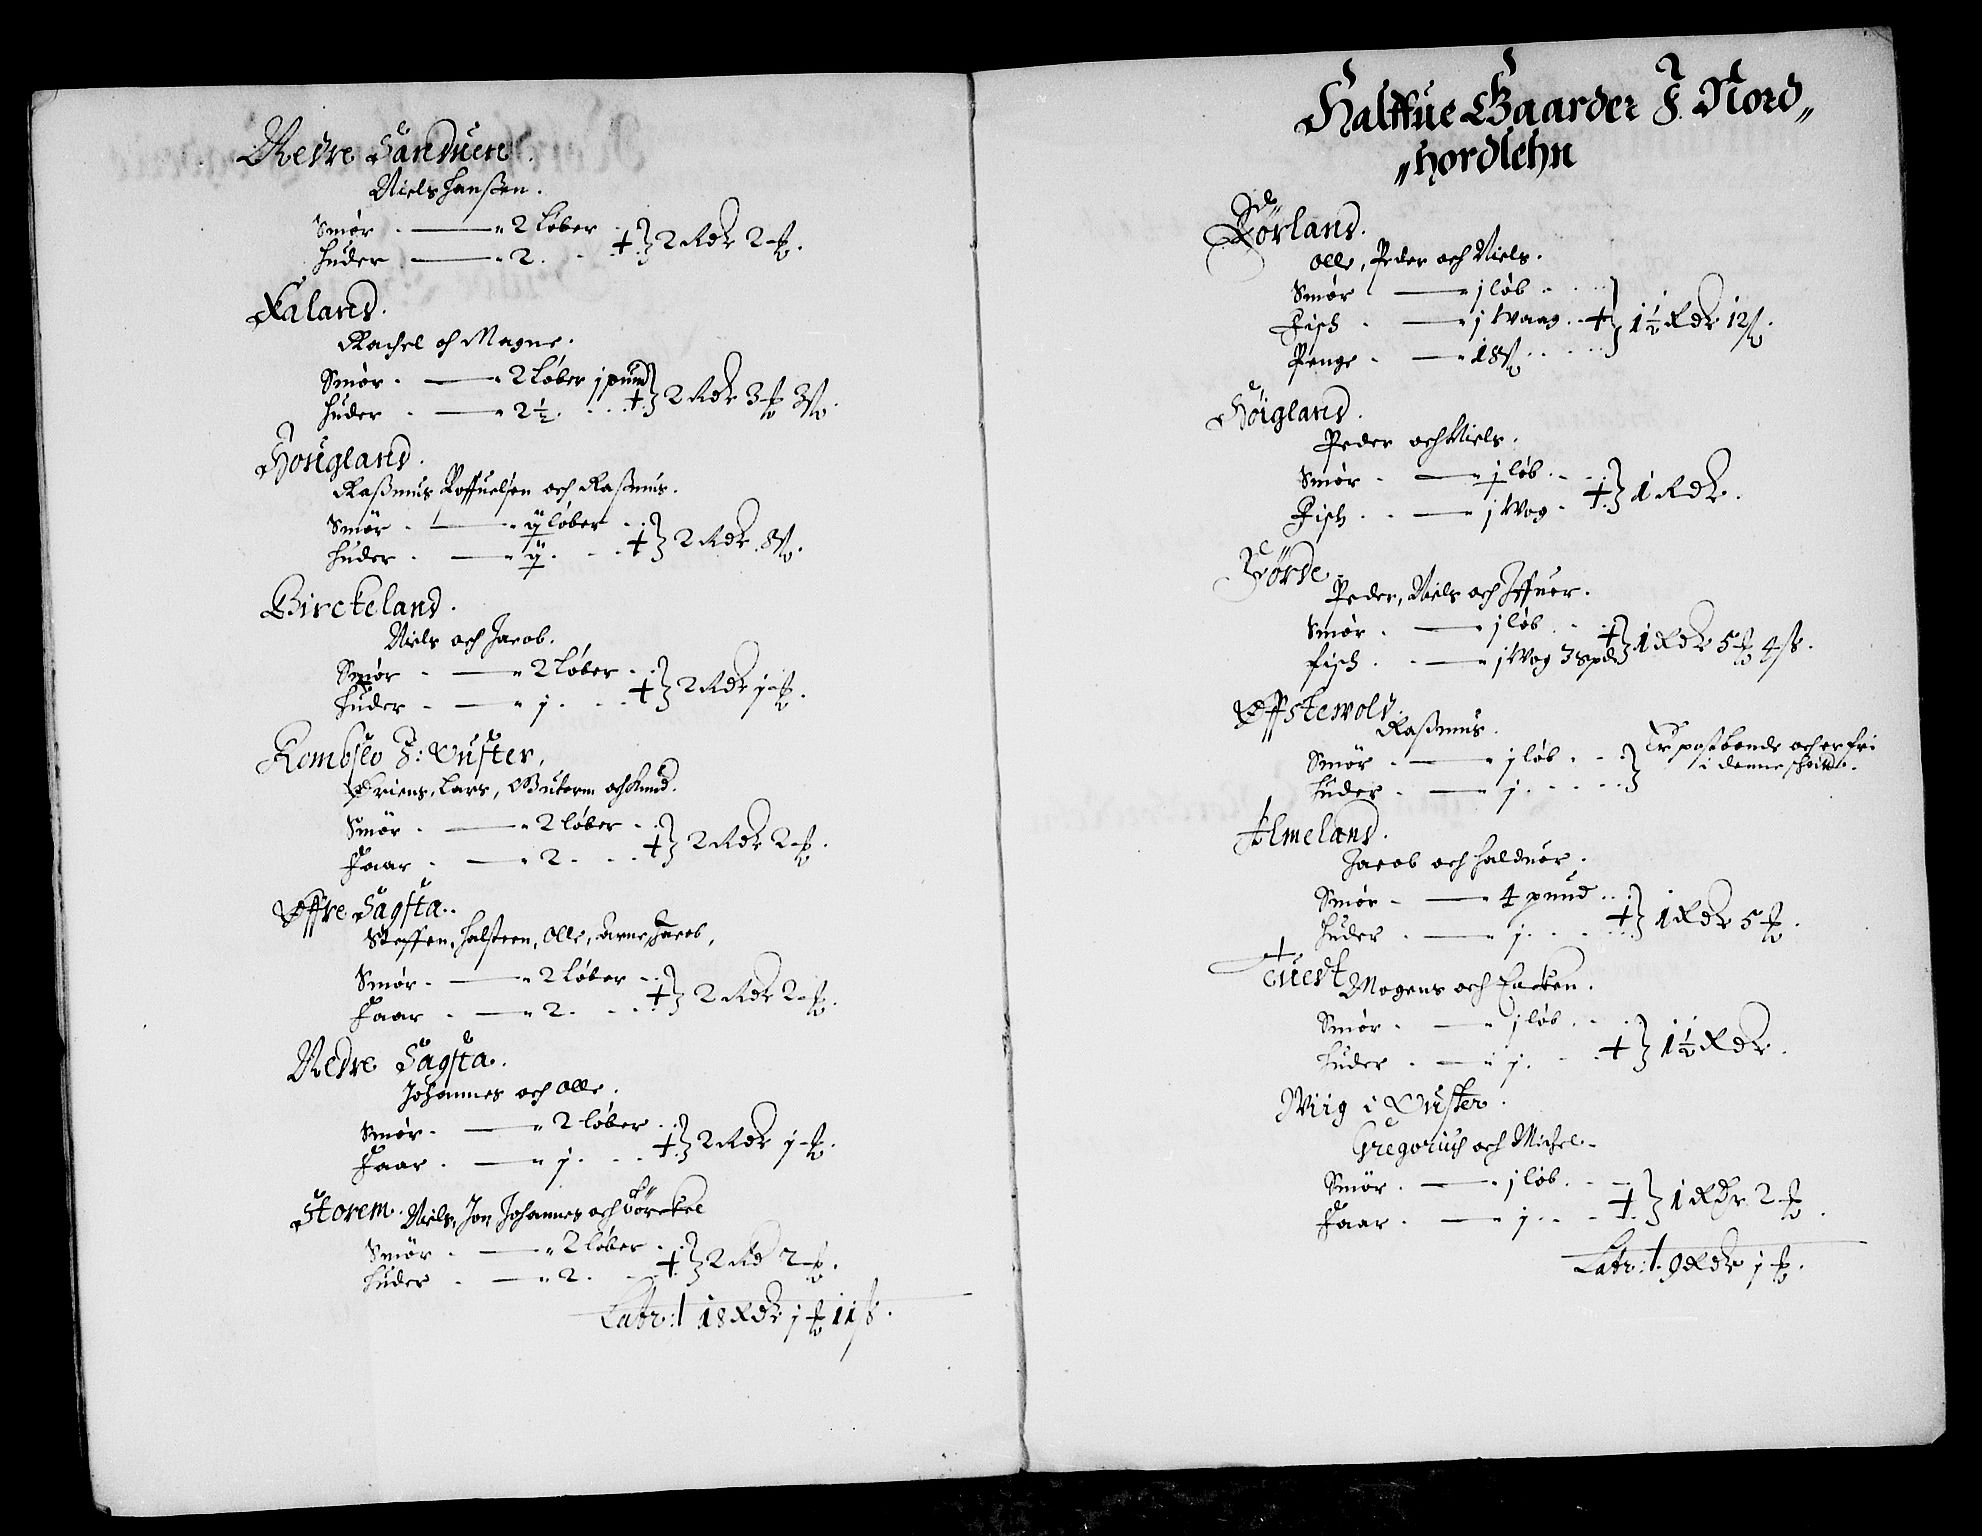 Nedre Sanduen.
Niels Hansen.
Smør . — 2 Løber
Huder . — 2. + } 2 Rdr 2 ₰
Faland.
Rachel och Magne.
Smør . — 2 Løber j pund
Huder . — 2½ . + } 2 Rdr 3 ₰ 3 ß.
Hougland.
Raßmus Roffuelsen och Raßmus.
Smør . — ij løber
Huder . — ij . + } 2 Rdr 8 ß.
Birckeland.
Niels och Jacob.
Smør . — 2 Løber
Huder . — j . + } 2 Rdr j ₰.
Rombseo I: Ouster.
Briens, Lars, Gutorm och Knud.
Smør . — 2 løber
Faar . — 2 . + } 2 Rdr 2 ₰.
Øffre Sagsta.
Steffen, Halsteen, Olle, Arne, Jacob,
Smør . — 2 Løber
Faar . — 2 . + } 2 Rdr 2 ₰.
Nedre Sagsta.
Johannes och Olle.
Smør . — 2 løber
Faar . — j . + } 2 Rdr j ₰.
Storem. Niels, Jon, Johannes och Børckel
Smør . — 2 løber
Huder . — 2 . + } 2 Rd 2 ₰.
Latr: 18 Rdr j ₰ 11 ß.
Halffue Gaarder I. Nord„
„hordlehn
Førland.
Olle, Peder och Niels.
Smør . — j løb
Fisch . — j Waag . + } 1½ Rdr 12 ß.
Penge . — 18 ß
Høigland.
Peder och Niels.
Smør . — j løb
Fisch . — j Wog . + } 1 Rdr.
Førde.
Peder, Niels och Iffuer.
Smør . — j løb
fisch . — j Wog 3 spd + } 1 Rdr 5 ₰ 4 ß.
Øffstewold.
Raßmus.
Smør . — j løb . } Er postbonde och er fri
Huder . — j . i denne schatt.
Almeland.
Jacob och Halduor.
Smør . — 4 pund
Huder . — j . + } 1 Rdr 5 ₰.
Tuedt Mogens och
Smør . — j løb
Huder . — j . + } 1½ Rdr.
Wiig i Ouster.
Gregorius och Michel.
Smør . — j løb
Faar . — j . + } 1 Rdr 2 ₰
Latr: 9 Rdr j ₰.